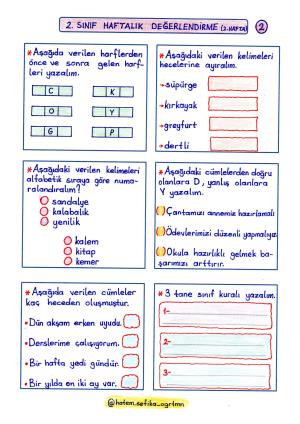 2. SINIF HAFTALIK DEĞERLENDİRME (2.HAFTA) 2
*Aşağıda verilen harflerden
önce ve sonra gelen harf-
leri yazalım.
C K
O Y
G P
*Aşağıdaki verilen kelimeleri
hecelerine ayıralım.
-süpürge
-kırkayak
-greyfurt
-dertli
*Aşağıdaki verilen kelimeleri
alfabetik sıraya göre numa-
ralandıralım?
sandalye
kalabalık
yenilik
kalem
kitap
kemer
*Aşağıdaki cümlelerden doğru
olanlara D, yanlış olanlara
Y yazalım.
Çantamızı annemiz hazırlamalı
Ödevlerimizi düzenli yapmalıyız
Okula hazırlıklı gelmek ba-
şarımızı arttırır.
*Aşağıda verilen cümleler
kaç heceden oluşmuştur.
•Dün akşam erken uyudu.
•Derslerime çalışıyorum.
•Bir hafta yedi gündür.
•Bir yılda on iki ay var.
*3 tane sınıf kuralı yazalım.
1-
2-
3-
@hatem_sefika_ogrtmn